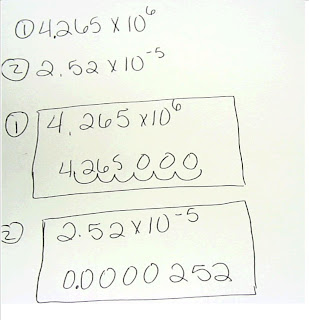 ① 4.265 x 10⁶
② 2.52 x 10⁻⁵
① 4.265 x10⁶
4.265000
② 2.52 x 10⁻⁵
0.0000252